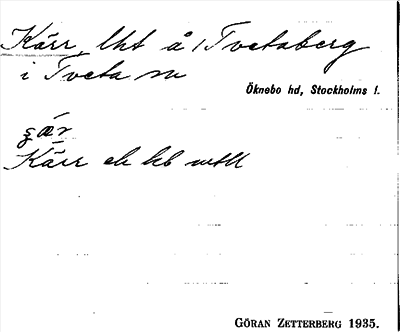 Kärr, lht å 1 Tvetaberg
i Tveta sn
Öknebo hd, Stockholms l.
çǽr
Kärr ek kb mtll
GÖRAN ZETTERBERG 1935.